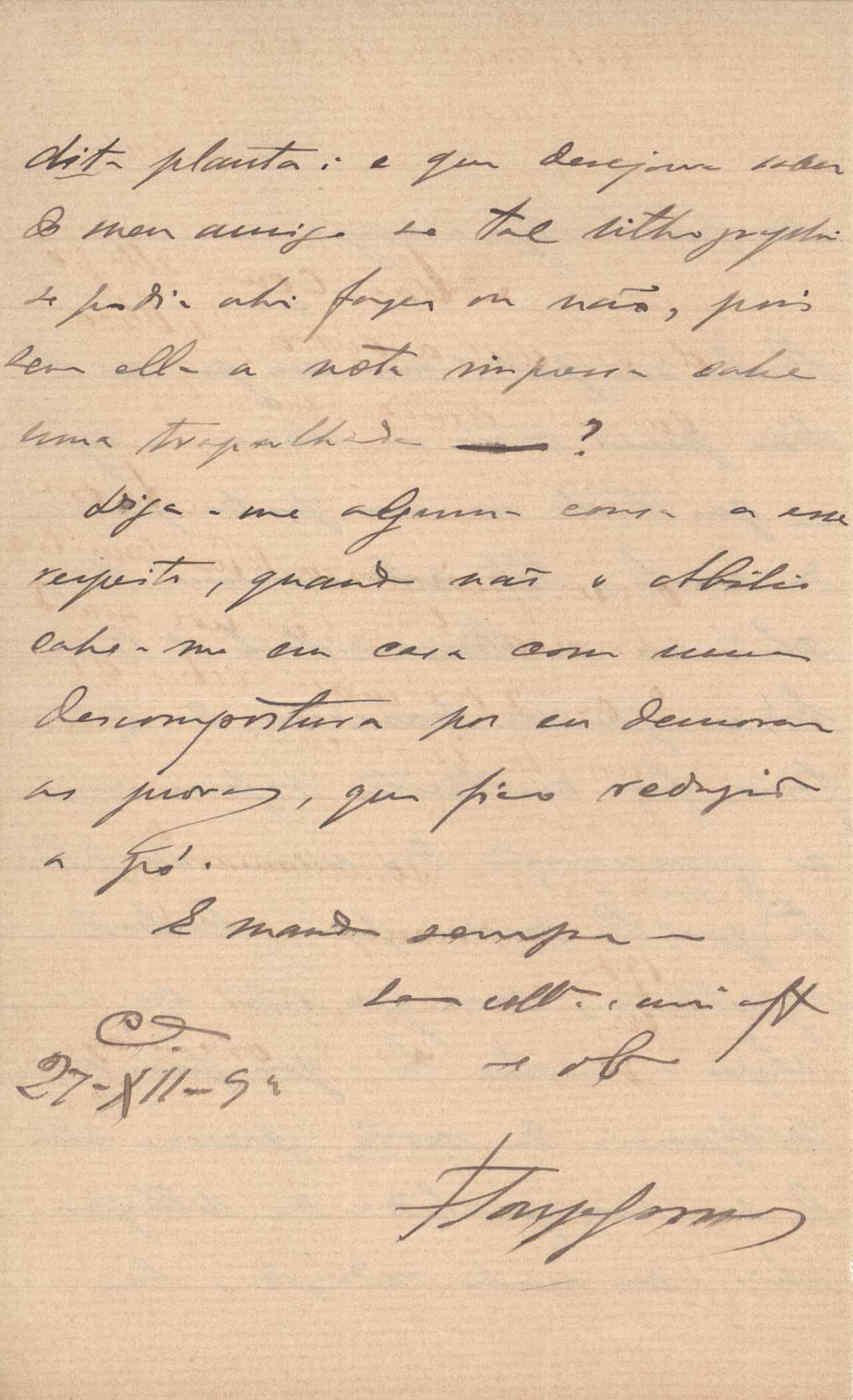 dita planta: e que desejava saber
do meu amigo se tal lithographia
se podia ahi fazer ou não, pois
sem ella a nota impressa sahe
uma trapalhada — ?
Diga-me alguma cousa a esse
respeito, quando não o Abilio
cahe-me em casa com uma
descompostura por eu demorar
as provas, que fico reduzido
a pó.
E mande sempre
collª. e amº aftº
e obº
27-XII-9